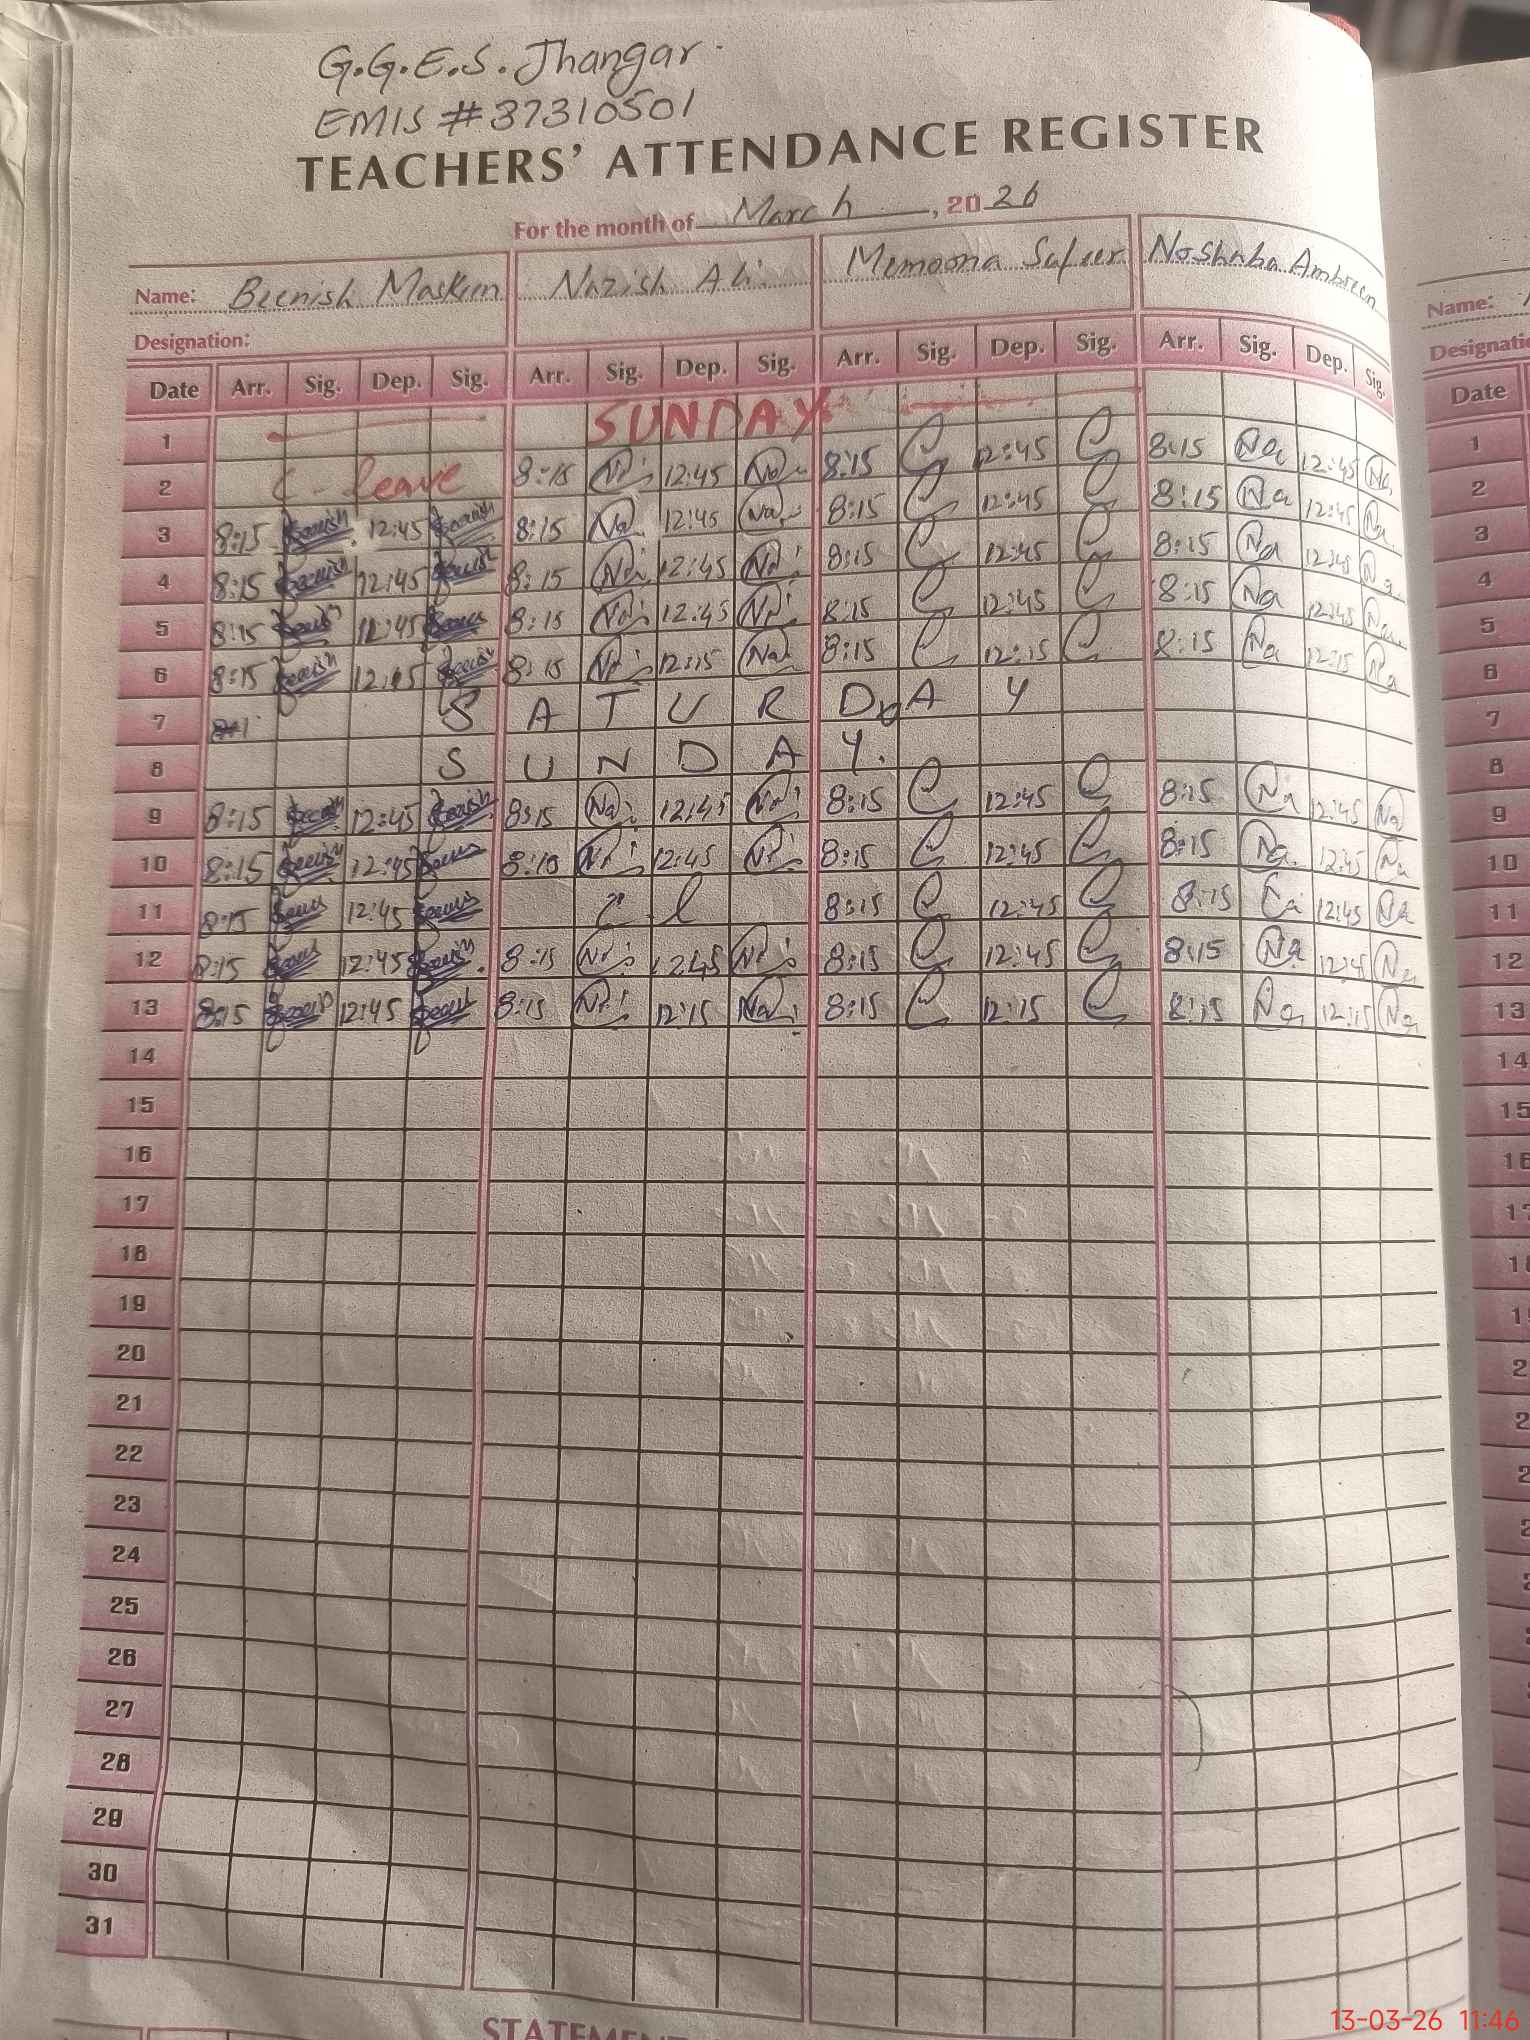 G.G.E.S. Jhangar
EMIS # 37310501
TEACHERS' ATTENDANCE REGISTER
For the month of March, 2026
Name: Beenish Maskeen Nazish Ali Memoona Safeer Noshaba Ambreen Name:
Designation:
Date Arr. Sig. Dep. Sig. Arr. Sig. Dep. Sig. Arr. Sig. Dep. Sig. Arr. Sig. Dep. Sig. Date
1 SUNDAY 1
2 C- leave 8:15 12:45 8:15 12:45 8:15 Na 12:45 Na 2
3 8:15 Beenish 12:45 Beenish 8:15 Na 12:45 Na 8:15 12:45 8:15 Na 12:45 Na 3
4 8:15 Beenish 12:45 8:15 Na 12:45 Na 8:15 12:45 8:15 Na 12:45 Na 4
5 8:15 12:45 8:15 Na 12:45 Na 8:15 12:45 8:15 Na 12:45 5
6 8:15 Beenish 12:15 Beenish 8:15 Na 12:15 Na 8:15 12:15 8:15 Na 12:15 Na 6
7 S A T U R D A Y 7
8 S U N D A Y. 8
9 8:15 12:45 Beenish 8:15 Na 12:45 Na 8:15 12:45 8:15 Na 12:45 Na 9
10 8:15 12:45 8:10 Na 12:45 Na 8:15 12:45 8:15 Na 12:45 Na 10
11 8:15 12:45 c.l 8:15 12:45 8:15 12:45 Na 11
12 8:15 12:45 8:15 Na 12:45 Na 8:15 12:45 8:15 Na 12:45 Na 12
13 8:15 12:45 8:15 Na 12:15 Na 8:15 12:15 8:15 Na 12:15 Na 13
14 14
15 15
16
17
18
19
20
21
22
23
24
25
26
27
28
29
30
31
13-03-26 11:46